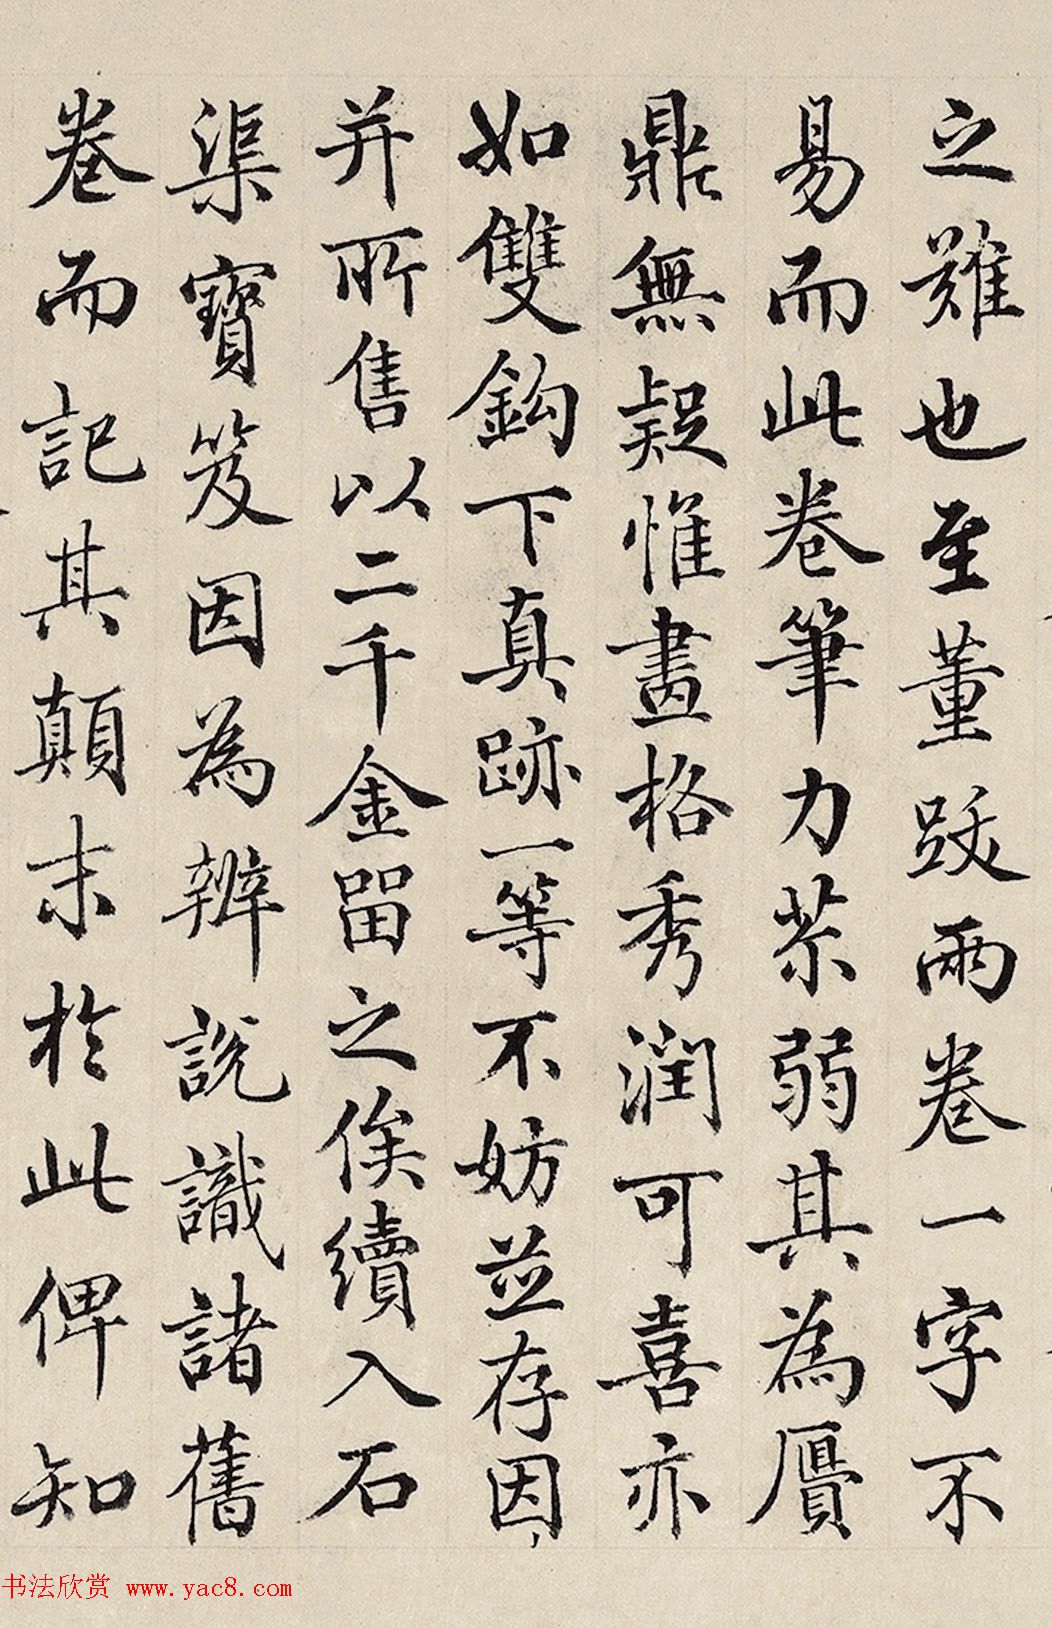 之難也至董跋兩卷一字不
易而此卷筆力苶弱其為贋
鼎無疑惟畫格秀潤可喜亦
如雙鈎下真跡一等不妨並存因
并所售以二千金留之俟續入石
渠寶笈因為辨説識諸舊
卷而記其顛末於此俾知
书法欣赏 www.yac8.com